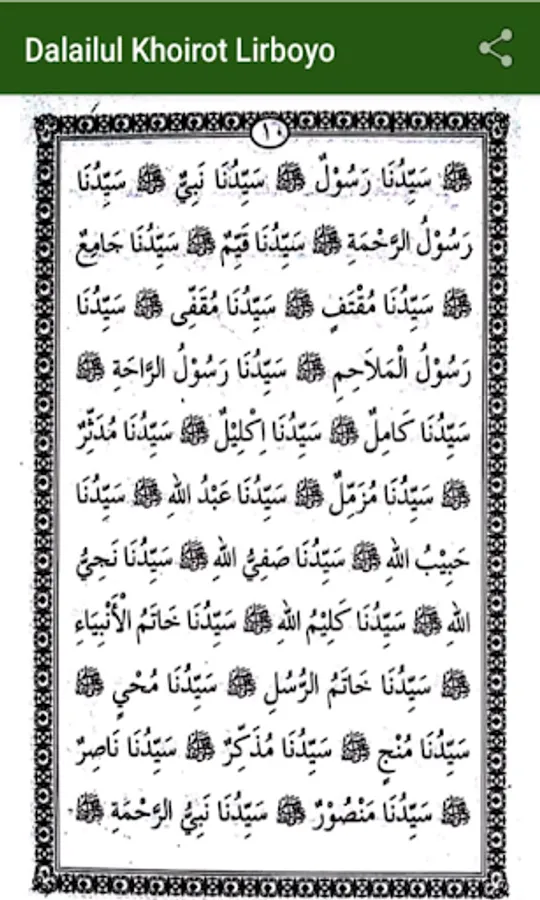 Dalailul Khoirot Lirboyo
١٠
ﷺ سَيِّدُنَا رَسُوْلٌ ﷺ سَيِّدُنَا نَبِيٌّ ﷺ سَيِّدُنَا
رَسُوْلُ الرَّحْمَةِ ﷺ سَيِّدُنَا قَيِّمٌ ﷺ سَيِّدُنَا جَامِعٌ
ﷺ سَيِّدُنَا مُقْتَفٍ ﷺ سَيِّدُنَا مُقَفًّى ﷺ سَيِّدُنَا
رَسُوْلُ الْمَلَاحِمِ ﷺ سَيِّدُنَا رَسُوْلُ الرَّاحَةِ ﷺ
سَيِّدُنَا كَامِلٌ ﷺ سَيِّدُنَا اِكْلِيْلٌ ﷺ سَيِّدُنَا مُدَثِّرٌ
ﷺ سَيِّدُنَا مُزَمِّلٌ ﷺ سَيِّدُنَا عَبْدُ اللهِ ﷺ سَيِّدُنَا
حَبِيْبُ اللهِ ﷺ سَيِّدُنَا صَفِيُّ اللهِ ﷺ سَيِّدُنَا نَجِيُّ
اللهِ ﷺ سَيِّدُنَا كَلِيْمُ اللهِ ﷺ سَيِّدُنَا خَاتَمُ الْأَنْبِيَاءِ
ﷺ سَيِّدُنَا خَاتَمُ الرُّسُلِ ﷺ سَيِّدُنَا مُحْيٍ ﷺ
سَيِّدُنَا مُنْجٍ ﷺ سَيِّدُنَا مُذَكِّرٌ ﷺ سَيِّدُنَا نَاصِرٌ
ﷺ سَيِّدُنَا مَنْصُوْرٌ ﷺ سَيِّدُنَا نَبِيُّ الرَّحْمَةِ ﷺ